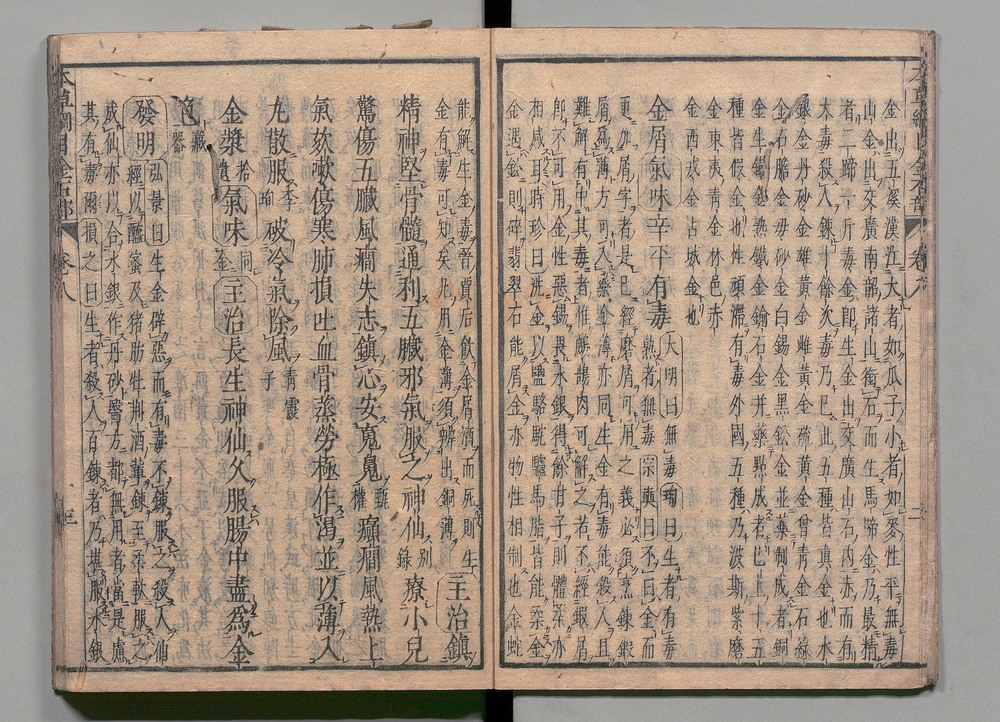 金出五溪漢江大者如瓜子小者如麥性平無毒
山金出交廣南韶諸山銜石而生馬蹄金乃最精
者二蹄一斤毒金即生金出交廣山石內赤而有
大毒殺人鍊十餘次毒乃已此五種皆真金也水
銀金丹砂金雄黃金雌黃金硫黃金曾青金石綠
金石膽金母砂金白錫金黑鉛金並藥制成者銅
金生鐵金熟鐵金鍮石金並藥點成者已上十五
種皆假金也性頑滯有毒外國五種乃波斯紫磨
金東夷青金林邑赤
金西戎金占城金也
金屑氣味辛平有毒
大明曰無毒珣曰生者有毒
熱者無毒宗奭曰不曰金而
更加屑字者是已經磨屑可用之義必須烹鍊鍛
屑為薄方可入藥金薄亦同生金有毒能殺人且
難解有中其毒者惟鷓鴣肉可解之若不經鍛屑
即不可用金性惡錫畏水銀得餘甘子則體柔亦
相感耳時珍曰洗金以鹽駱駝驢馬脂皆能柔金
金遇鉛則碎翡翠石能屑金亦物性相制也金蛇
能解生金毒晉賈后飲金屑酒而死則生
金有毒可知矣凡用金薄須辨出銅薄
主治鎮
精神堅骨髓通利五臟邪氣服之神仙別錄療小兒
驚傷五臟風癇失志鎮心安魂魄甄權癲癇風熱上
氣欬嗽傷寒肺損吐血骨蒸勞極作渴並以薄入
丸散服李珣破冷氣除風青霞子
金漿拾遺氣味同金主治長生神仙久服腸中盡為金
色藏器
發明弘景曰生金辟惡而有毒不鍊服之殺人仙
經以醯蜜及豬肪牡荆酒輩鍊至柔軟服之
成仙亦以合水銀作丹砂醫方都無用者當是慮
其有毒爾損之曰生者殺人百鍊者乃堪服水銀
本草綱目金石部
卷八
三